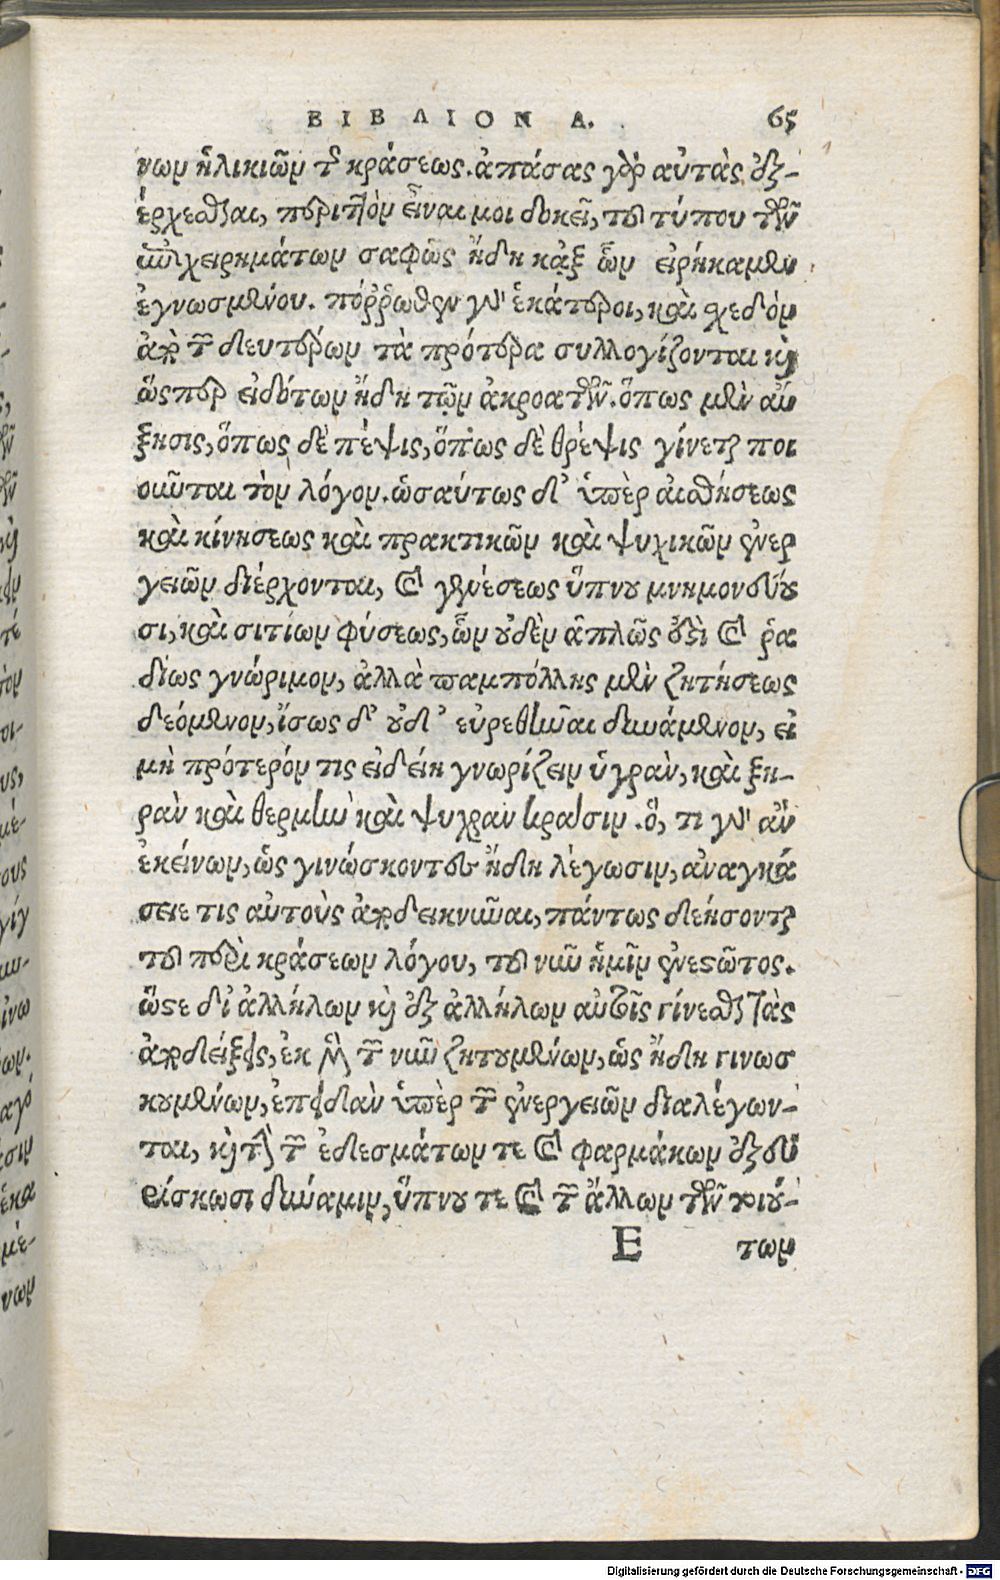 ΒΙΒΛΙΟΝ Α. 65
νων ἡλικιῶν τῆς κράσεως. ἁπάσας γὰρ αὐτὰς ἐξ-
έρχεσθαι, περιττὸν εἶναί μοι δοκεῖ, τοῦ τύπου τῶν
ἐπιχειρημάτων σαφῶς ἤδη κᾀξ ὧν εἰρήκαμεν
ἐγνωσμένου. πόῤῥωθεν γὰρ ἑκάτεροι, καὶ σχεδὸν
ἀπὸ τῶν δευτέρων τὰ πρότερα συλλογίζονται καὶ
ὥσπερ εἰδότων ἤδη τῶν ἀκροατῶν. ὅπως μὲν αὔ
ξησις, ὅπως δὲ πέψις, ὅπως δὲ θρέψις γίνεται ποι
οῦνται τὸν λόγον. ὡσαύτως δ' ὑπὲρ αἰσθήσεως
καὶ κίνησεως καὶ πρακτικῶν καὶ ψυχικῶν ἐνερ
γειῶν διέρχονται, καὶ γενέσεως ὕπνου μνημονεύου
σι, καὶ σιτίων φύσεως, ὧν οὐδὲν ἁπλῶς ἐστὶ καὶ ῥα
δίως γνώριμον, ἀλλὰ παμπόλλης μὲν ζητήσεως
δεόμενον, ἴσως δ' οὐδ' εὑρεθῆναι δυνάμενον, εἰ
μὴ πρότερόν τις εἰδείη γνωρίζειν ὑγρὰν, καὶ ξη-
ρὰν καὶ θερμὴν καὶ ψυχρὰν κρᾶσιν. ὅ, τι γὰρ ἂν
ἐκείνων, ὡς γινώσκοντες ἤδη λέγωσιν, ἀναγκά
σειε τις αὐτοὺς ἀποδεικνῦναι, πάντως δεήσονται
τοῦ περὶ κράσεων λόγου, τοῦ νῦν ἡμῖν ἐνεστῶτος.
ὥστε δι' ἀλλήλων καὶ ἐξ ἀλλήλων αὐτοῖς γίνεσθαι τὰς
ἀποδείξεις, ἐκ μὲν τῶν νῦν ζητουμένων, ὡς ἤδη γινωσ
κομένων, ἐπειδὰν ὑπὲρ τῶν ἐνεργειῶν διαλέγων-
ται, καὶ τὴν τῶν ἐδεσμάτων τε καὶ φαρμάκων ἐξευ
ρίσκωσι δύναμιν, ὕπνου τε καὶ τῶν ἄλλων τῶν τοιού-
Ε των
Digitalisierung gefördert durch die Deutsche Forschungsgemeinschaft - DFG